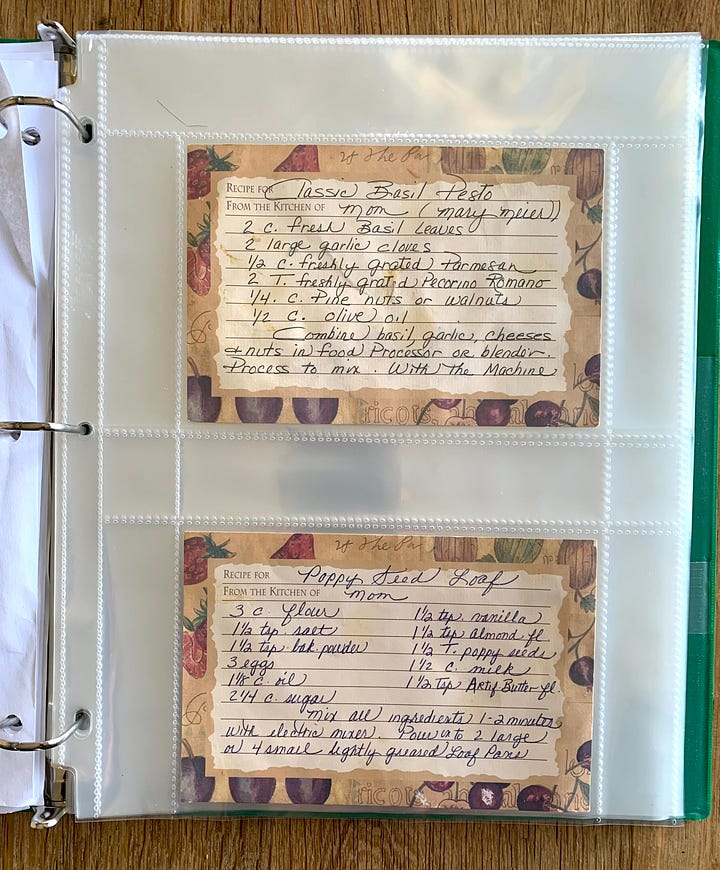 Recipe for Classic Basil Pesto
From the Kitchen of Mom (Mary Meier)
2 c. fresh Basil Leaves
2 large garlic cloves
1/2 c. freshly grated Parmesan
2 T. freshly grated Pecorino Romano
1/4 c. Pine nuts or walnuts
1/2 c. olive oil
Combine basil, garlic, cheeses
+ nuts in food Processor or blender.
Process to mix. With the Machine
Recipe for Poppy Seed Loaf
From the Kitchen of Mom
3 c. flour
1 1/2 tsp. salt
1 1/2 tsp bak. powder
3 eggs
1 1/8 c. oil
2 1/4 c. sugar
1 1/2 tsp. vanilla
1 1/2 tsp almond fl.
1 1/2 T. poppy seeds
1 1/2 c. milk
1 1/2 tsp Artif Butter fl.
Mix all ingredients 1-2 minutes
with electric mixer. Pour into 2 large
or 4 small lightly greased Loaf Pans